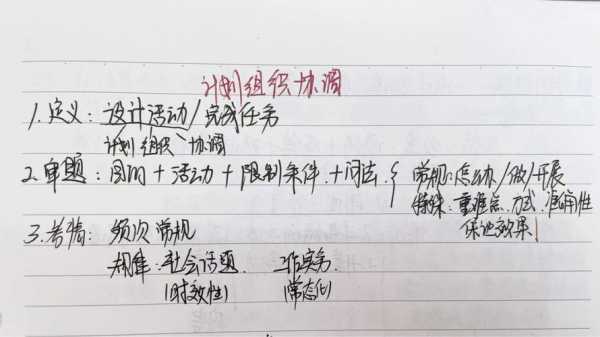 计划组织协调
1.定义：设计活动/完成任务
计划 组织、协调
2.审题：目的+活动+限制条件+问法{ 常规:怎么办/做/开展
特殊:重难点、方式、准确性
保证效果
3.考情：频次 常规
规律:社会话题 工作实务
(时效性) (常态化)